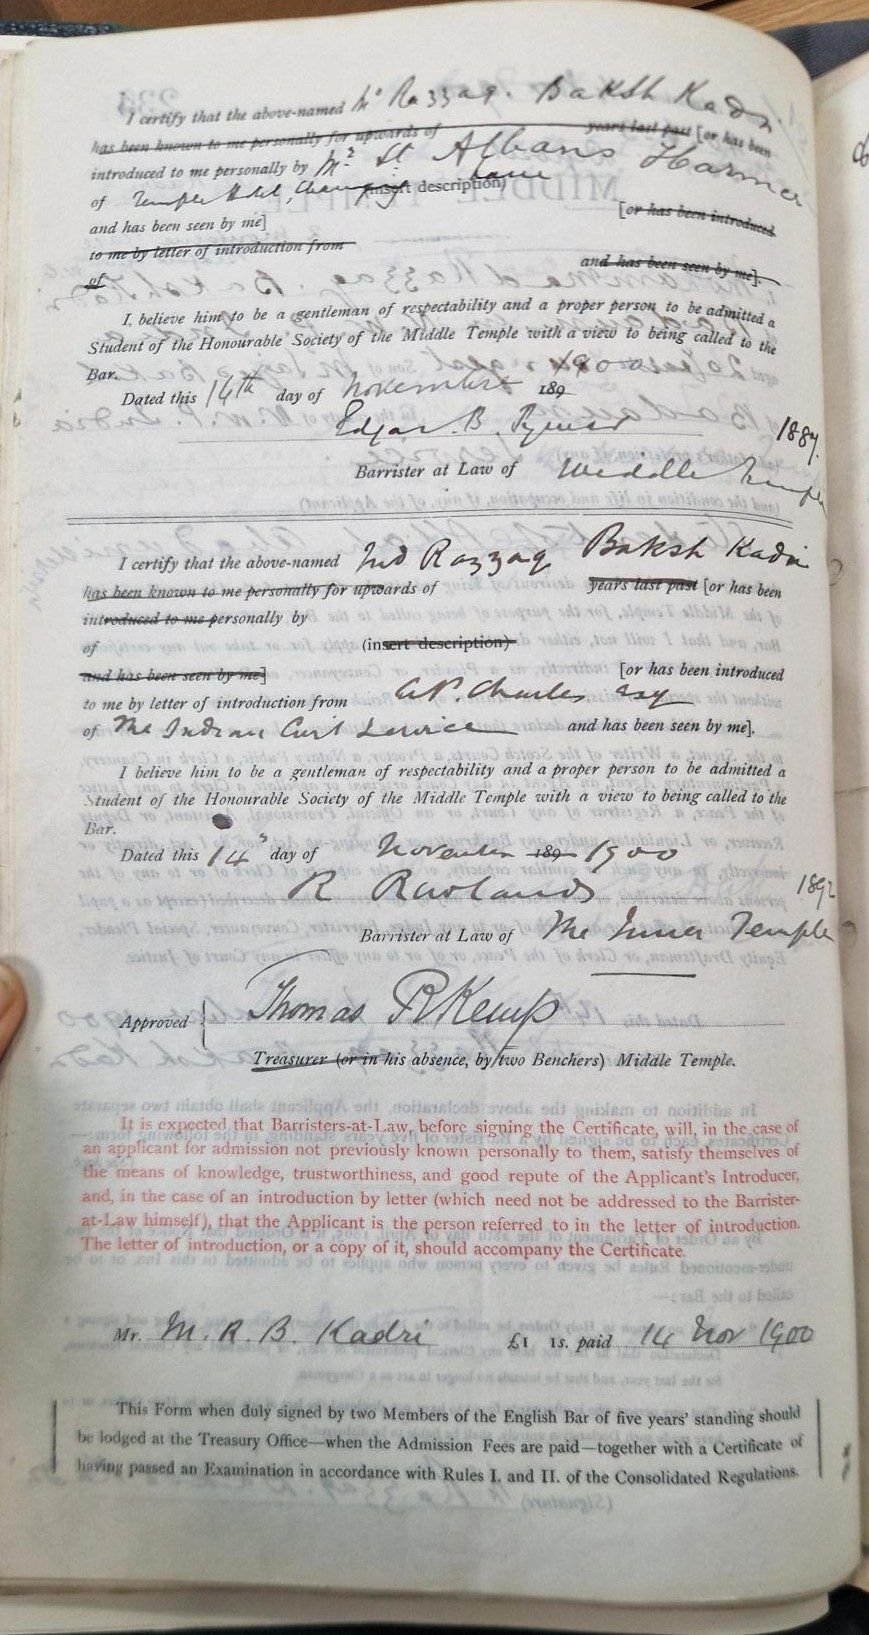 I certify that the above-named Mr Razzaq. Baksh Kadri
has been known to me personally for upwards of years last past [or has been
introduced to me personally by Mr St Albans Harmer
of Temple Hotel, Lane (insert description)
and has been seen by me] [or has been introduced
to me by letter of introduction from
of and has been seen by me].
I believe him to be a gentleman of respectability and a proper person to be admitted a
Student of the Honourable Society of the Middle Temple with a view to being called to the
Bar.
Dated this 14th day of November 189 1900
Edgar. B.
1887.
Barrister at Law of Middle Temple
I certify that the above-named Md Razzaq Baksh Kadri
has been known to me personally for upwards of years last past [or has been
introduced to me personally by
of (insert description)
and has been seen by me] [or has been introduced
to me by letter of introduction from A.P. Charles Esq
of The Indian Civil Service and has been seen by me].
I believe him to be a gentleman of respectability and a proper person to be admitted a
Student of the Honourable Society of the Middle Temple with a view to being called to the
Bar.
Dated this 14th day of November 189 1900
R Rowlands
1892
Barrister at Law of The Inner Temple
Approved { Thomas R Kemp
Treasurer (or in his absence, by two Benchers) Middle Temple.
It is expected that Barristers-at-Law, before signing the Certificate, will, in the case of
an applicant for admission not previously known personally to them, satisfy themselves of
the means of knowledge, trustworthiness, and good repute of the Applicant's Introducer,
and, in the case of an introduction by letter (which need not be addressed to the Barrister-
at-Law himself), that the Applicant is the person referred to in the letter of introduction.
The letter of introduction, or a copy of it, should accompany the Certificate.
Mr. M. R. B. Kadri £1 1s. paid 14 Nov 1900
This Form when duly signed by two Members of the English Bar of five years' standing should
be lodged at the Treasury Office—when the Admission Fees are paid—together with a Certificate of
having passed an Examination in accordance with Rules I. and II. of the Consolidated Regulations.